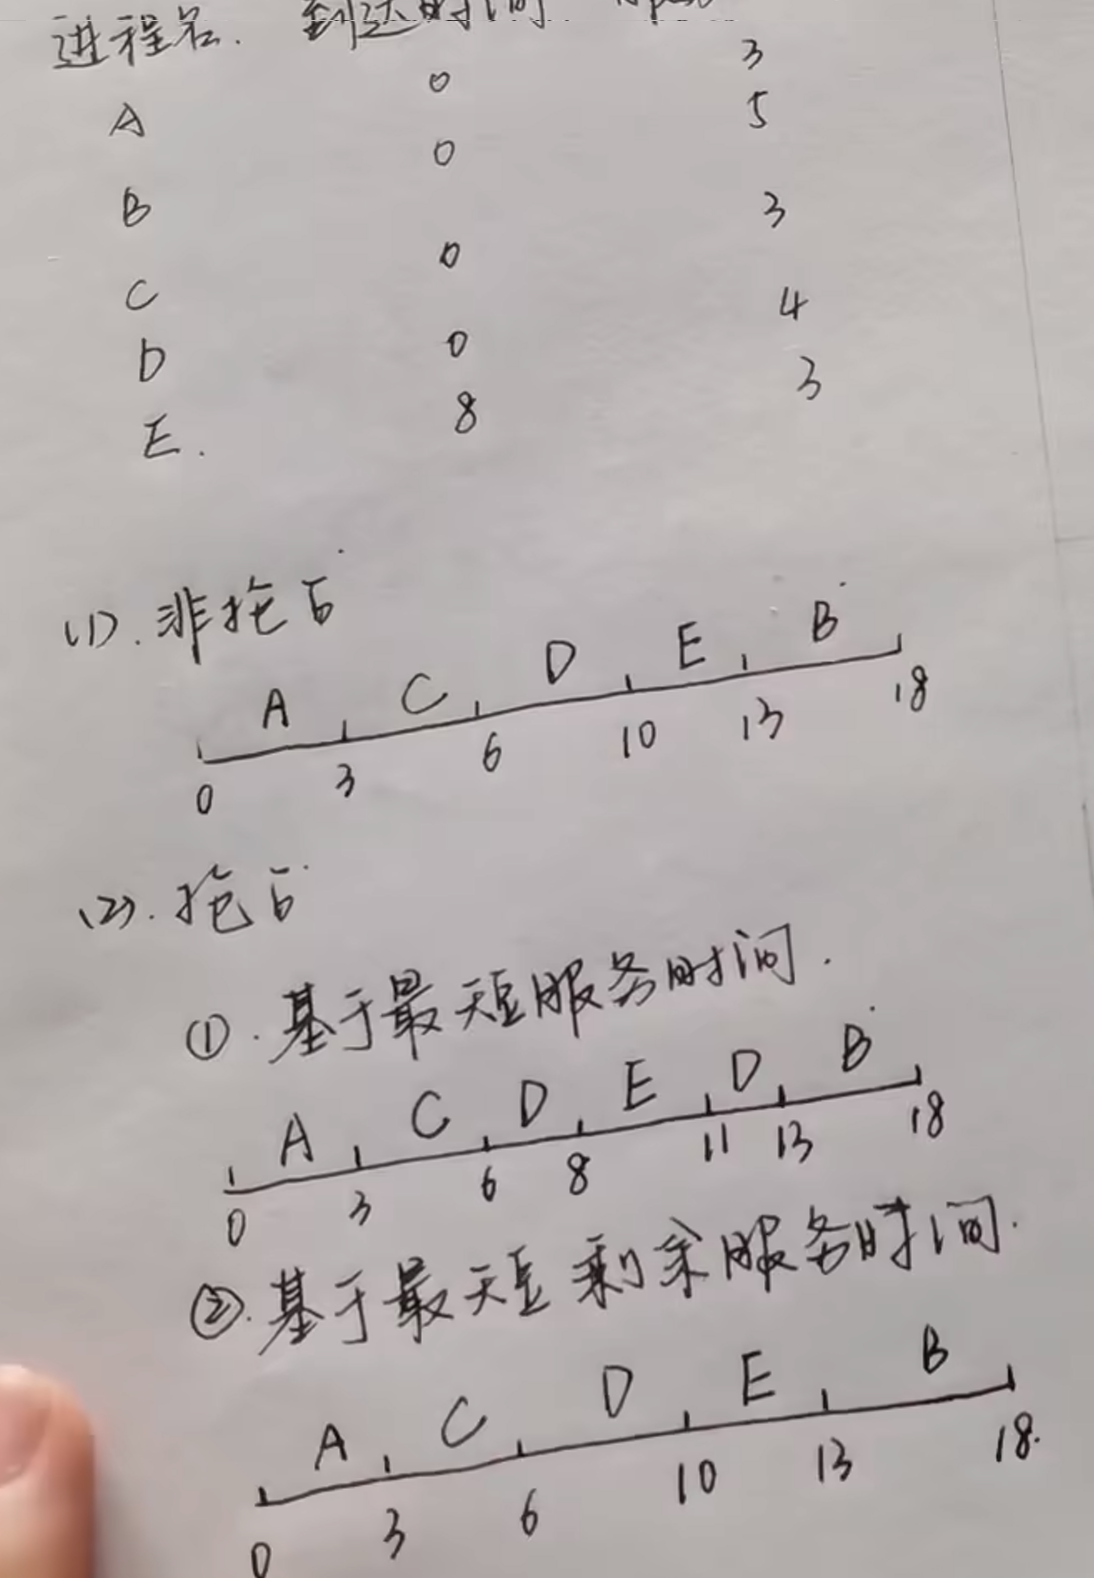 进程名. 到达时间
A 0 3
B 0 5
C 0 3
D 0 4
E. 8 3
(1). 非抢占
A C D E B
0 3 6 10 13 18
(2). 抢占
①. 基于最短服务时间.
A C D E D B
0 3 6 8 11 13 18
②. 基于最短剩余服务时间.
A C D E B
0 3 6 10 13 18.